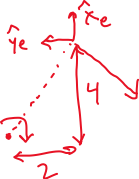 x̂e
ŷe
4
2